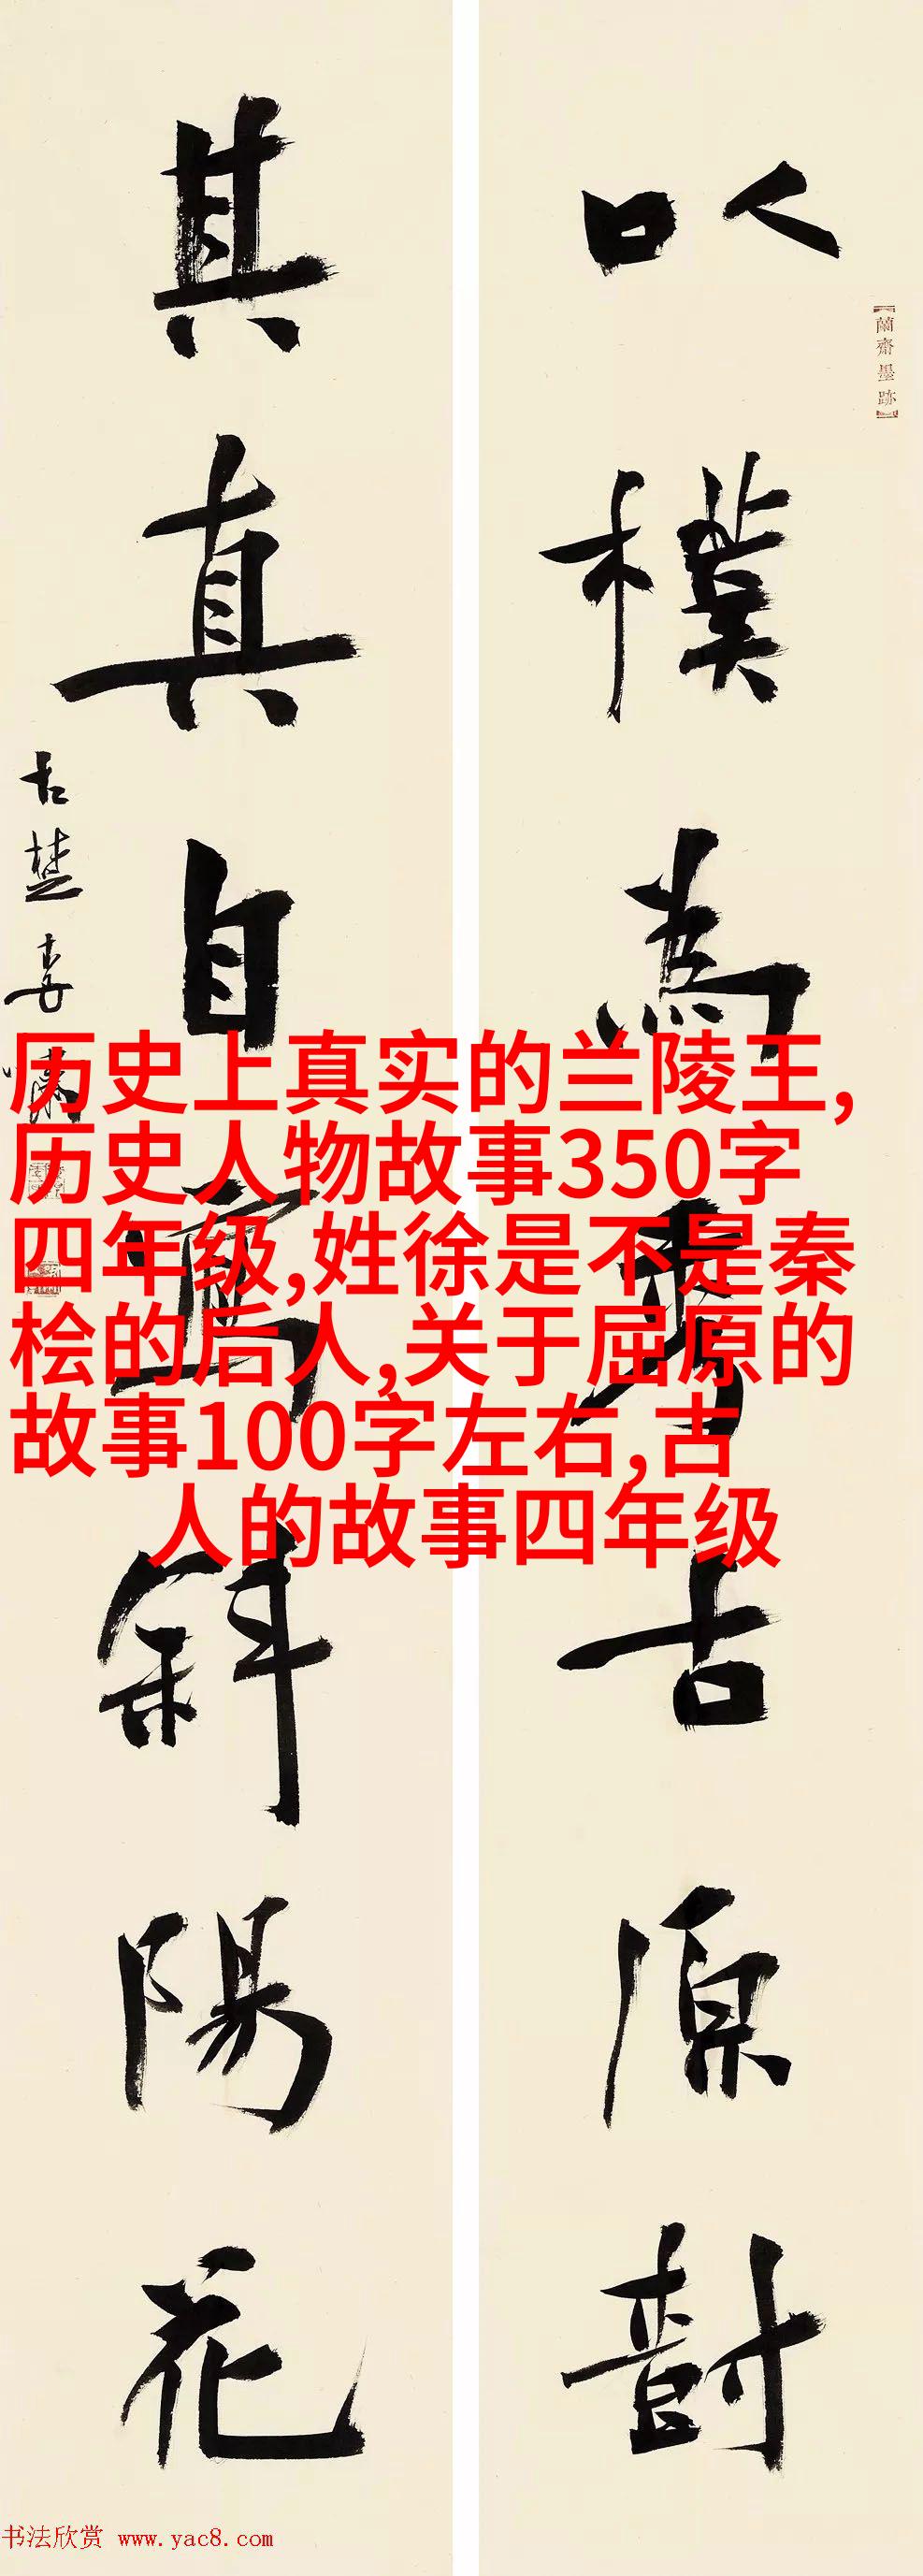 以樸為秀古原樹
蘭齋墨跡
其真自寫斜陽花
历史上真实的兰陵王,
历史人物故事350字
四年级,姓徐是不是秦
桧的后人,关于屈原的
故事100字左右,古
人的故事四年级
书法欣赏 www.yac8.com